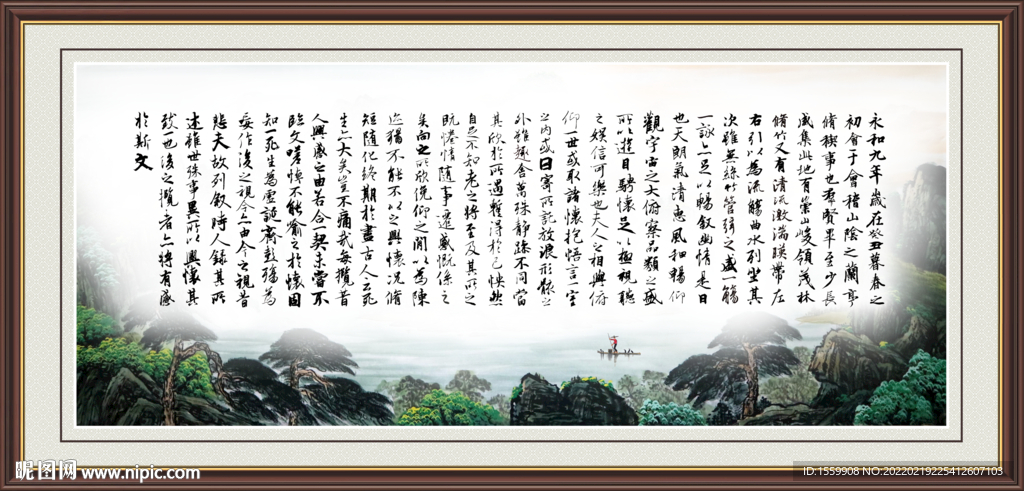 永和九年歲在癸丑暮春之
初會于會稽山陰之蘭亭
脩稧事也群賢畢至少長
咸集此地有崇山峻領茂林
脩竹又有清流激湍暎帶左
右引以為流觴曲水列坐其
次雖無絲竹管弦之盛一觴
一詠亦足以暢敘幽情是日
也天朗氣清惠風和暢仰
觀宇宙之大俯察品類之盛
所以遊目騁懷足以極視聽
之娛信可樂也夫人之相與俯
仰一世或取諸懷抱悟言一室
之內或曰寄所託放浪形骸之
外雖趣舍萬殊靜躁不同當
其欣於所遇暫得於己怏然
自足不知老之將至及其所之
既惓情隨事遷感慨係之
矣向之所欣俛仰之閒以為陳
迹猶不能不以之興懷況脩
短隨化終期於盡古人云死
生亦大矣豈不痛哉每攬昔
人興感之由若合一契未嘗不
臨文嗟悼不能喻之於懷固
知一死生為虛誕齊彭殤為
妄作後之視今亦由今之視昔
悲夫故列敘時人錄其所
述雖世殊事異所以興懷其
致一也後之攬者亦將有感
於斯文
昵图网 www.nipic.com
ID:1559908 NO:20220219225412607103